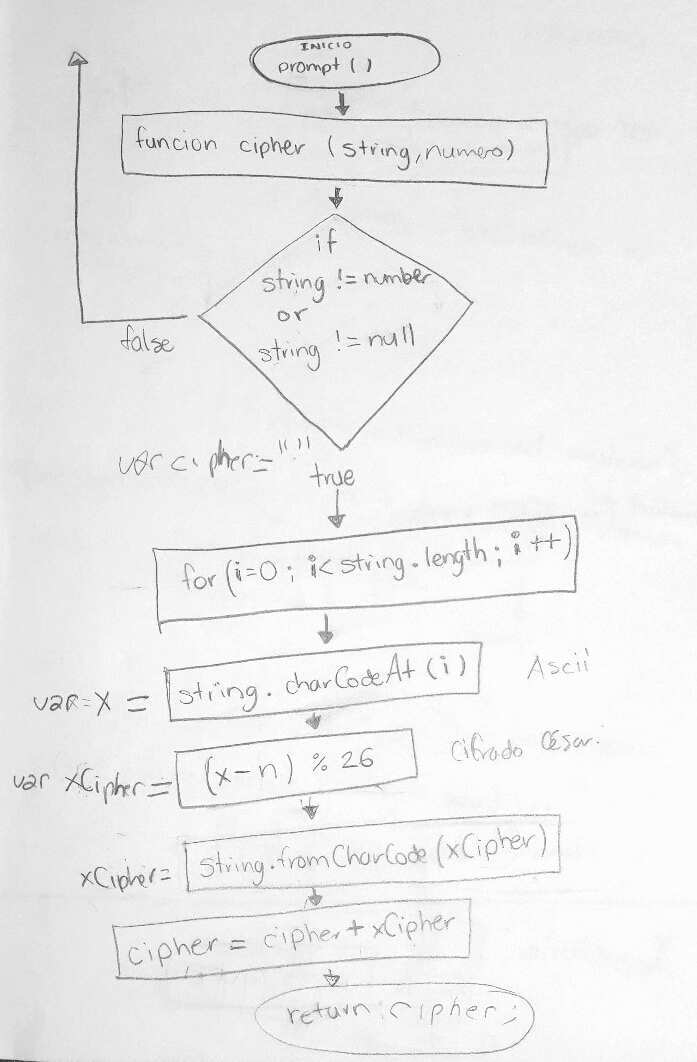 INICIO
prompt ( )
funcion cipher (string, numero)
if
string != number
or
string != null
false
var cipher = " "
true
for (i=0 ; i< string.length ; i ++)
var = X =
string. charCodeAt (i)
Ascii
var xCipher =
(x-n) % 26
Cifrado César.
xCipher =
String.fromCharCode (xCipher)
cipher = cipher + xCipher
return cipher ;